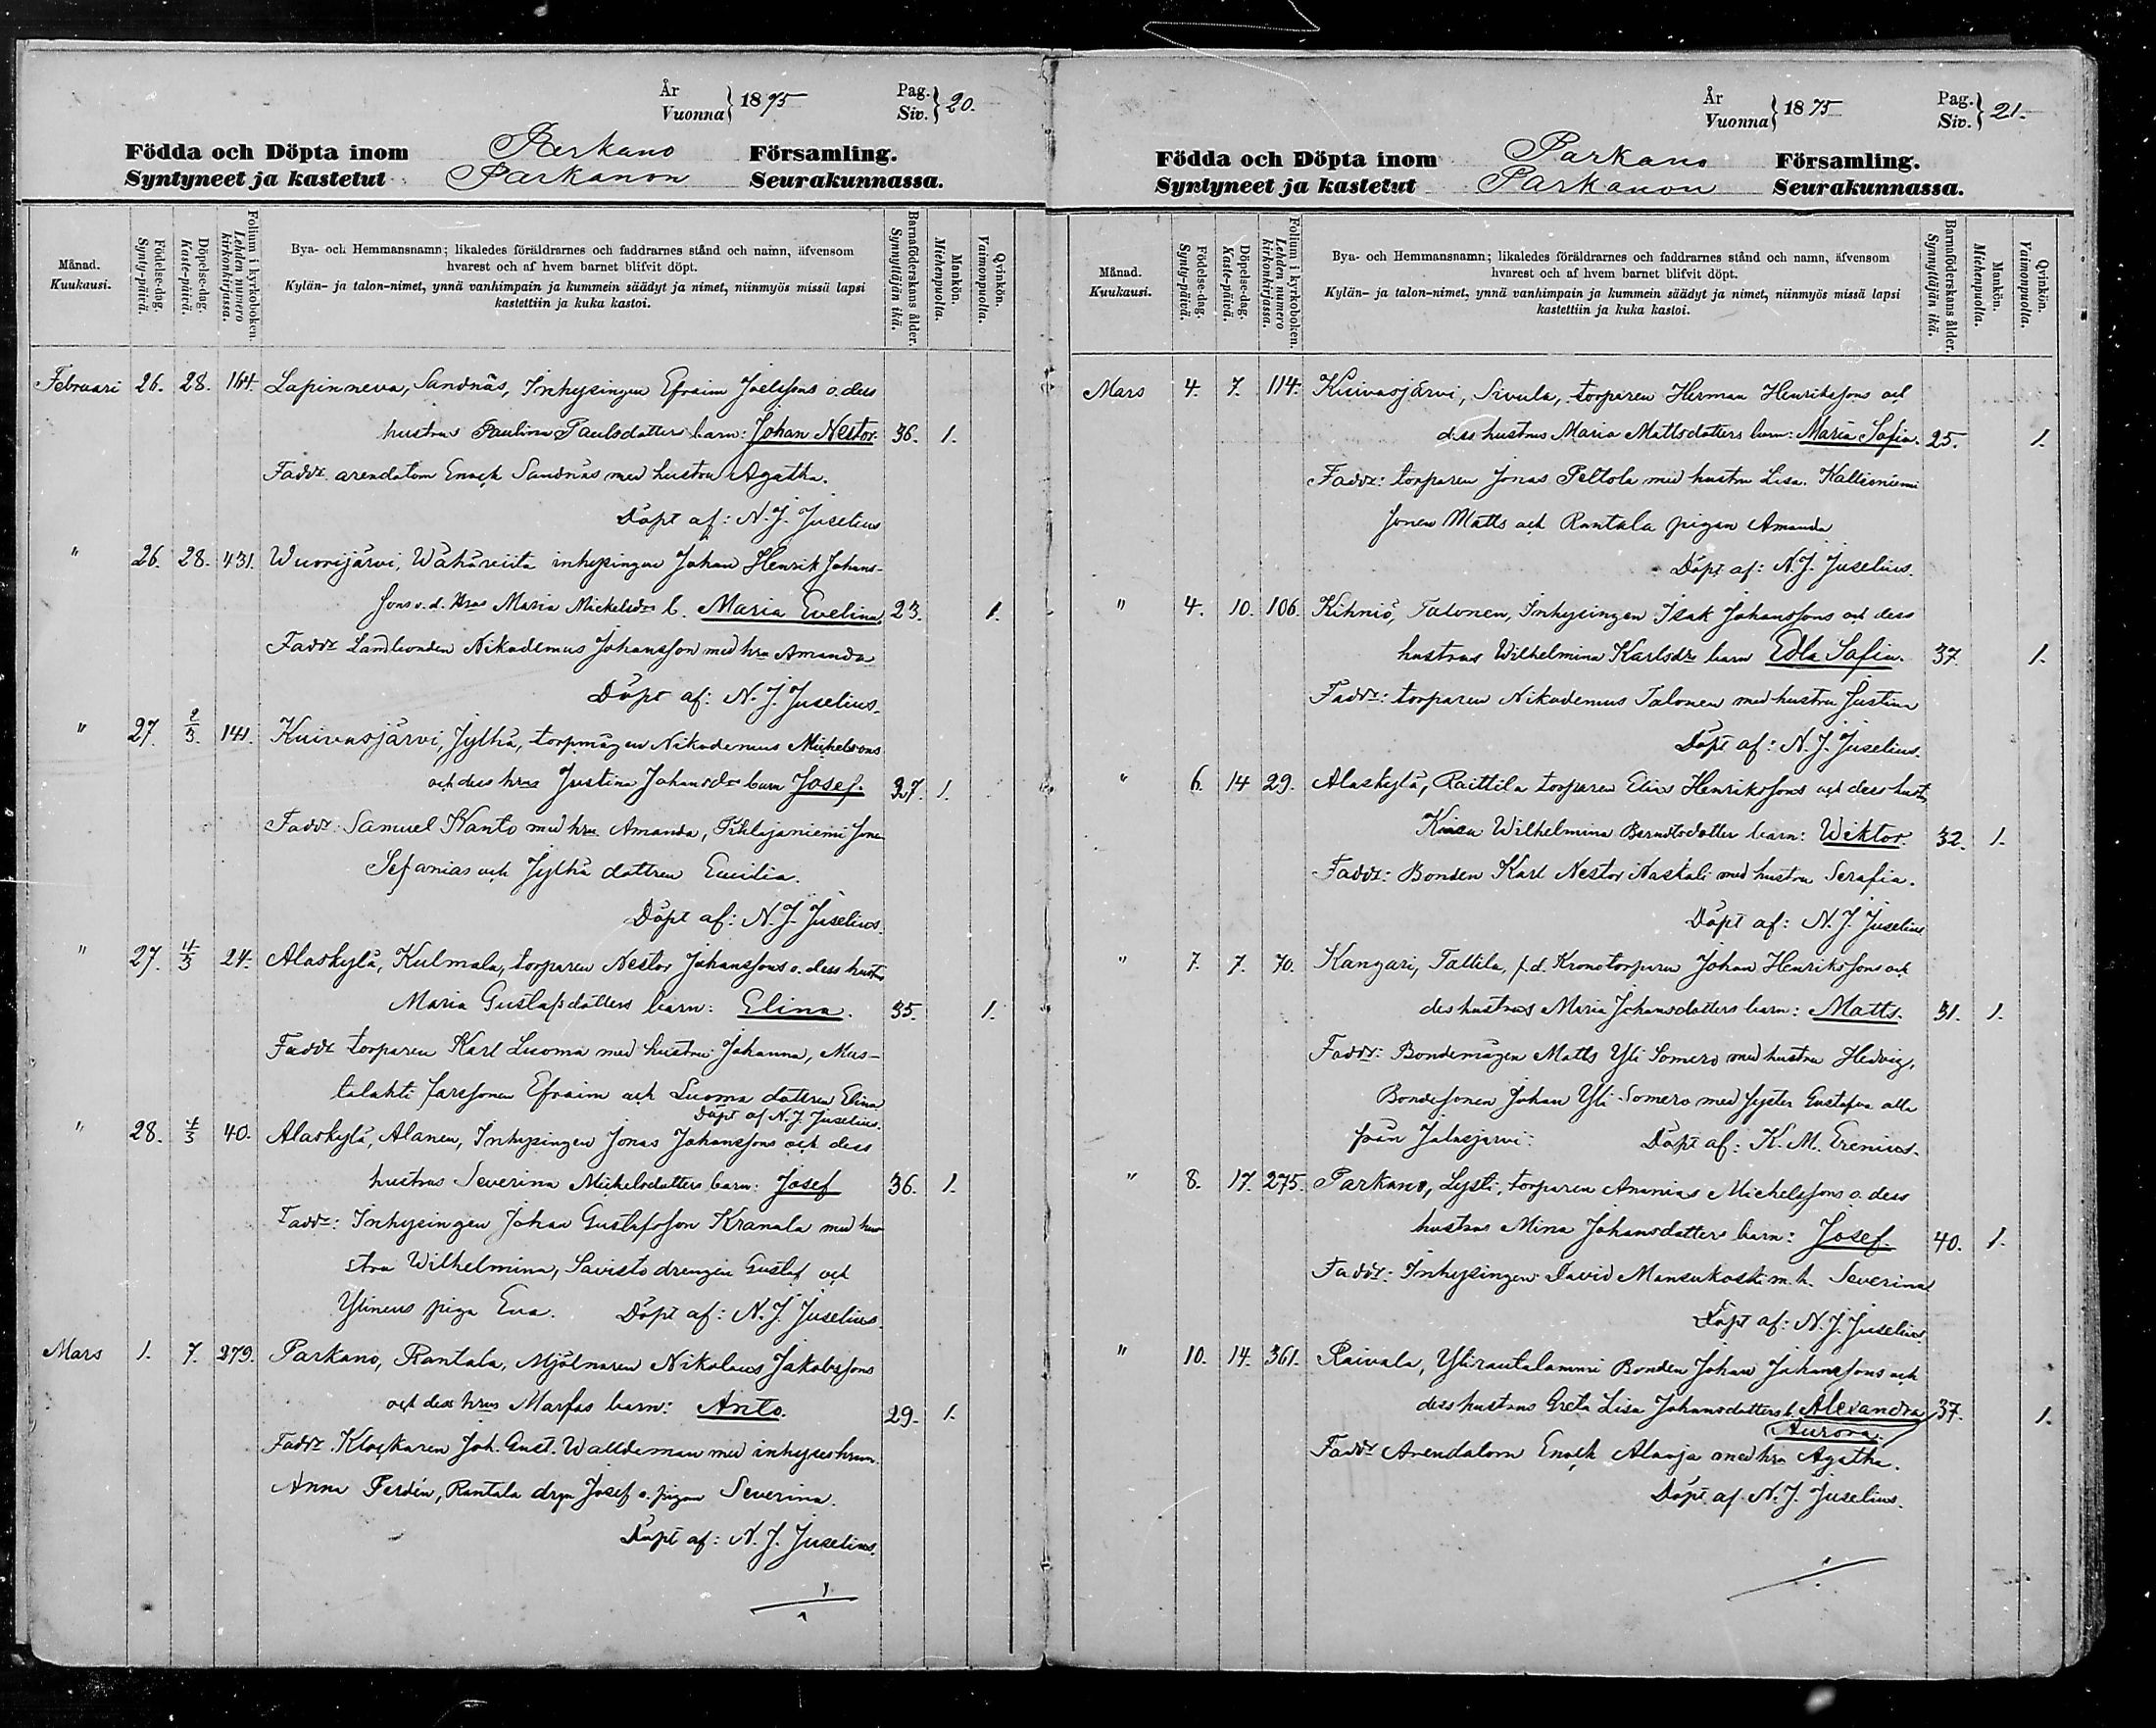 År
Vuonna } 1875
Pag.
Siv. } 20.
Födda och Döpta inom Parkano Församling.
Syntyneet ja kastetut Parkanon Seurakunnassa.
Månad. Kuukausi.
Födelse-dag. Synty-päivä.
Döpelse-dag. Kaste-päivä.
Folium i kyrkoboken. Lehden numero kirkonkirjassa.
Bya- och Hemmansnamn; likaledes föräldrarnes och faddrarnes stånd och namn, äfvensom
hvarest och af hvem barnet blifvit döpt.
Kylän- ja talon-nimet, ynnä vanhimpain ja kummein säädyt ja nimet, niinmyös missä lapsi
kastettiin ja kuka kastoi.
Barnaföderskans ålder. Synnyttäjän ikä.
Mankön. Miehenpuolia.
Qvinkön. Vaimonpuolia.
Februari 26. 28. 164. Lapinneva, Sandnäs, Inhysingen Efraim Joelssons o. dess
hustrus Paulina Paulsdotters barn: Johan Nestor. 36. 1.
Faddr. arendatorn Enoch Sandnäs med hustru Agatha.
Döpt af: N. J. Juselius
" 26. 28. 431. Wuorijärvi, Wähäriita inhysingen Johan Henrik Johans-
sons o. d. hrus Maria Mickelsdrs b. Maria Evelina. 23. 1.
Faddr Landbonden Nikodemus Johansson med hru Amanda
Döpt af: N. J. Juselius.
" 27. 2/3. 141. Kuivasjärvi, Jylhä, torpmågen Nikodemus Michelsons
och dess hrus Justina Johansdrs barn Josef. 37. 1.
Faddr: Samuel Kanto med hru Amanda, Pihlajaniemi sonen
Sefanias och Jylhä dottren Emilia.
Döpt af: N. J. Juselius.
" 27. 4/3 24. Alaskylä, Kulmala, torparen Nestor Johanssons o. dess hustrus
Maria Gustafsdotters barn: Elina. 35. 1.
Faddr torparen Karl Luoma med hustru Johanna, Mus-
talahti farssonen Efraim och Luoma dottren Elina
Döpt af N. J. Juselius.
" 28. 4/3 40. Alaskylä, Alanen, Inhysingen Jonas Johanssons och dess
hustrus Severina Michelsdotters barn: Josef 36. 1.
Faddr: Inhysingen Johan Gustafsson Kranala med hu-
stru Wilhelmina, Savisto drengen Gustaf och
Ylinens piga Eva. Döpt af: N. J. Juselius.
Mars 1. 7. 279. Parkano, Rantala, Mjölnaren Nikolaus Jakobssons
och dess hrus Marfas barn: Anto. 29. 1.
Faddr. Klockaren Joh. Gust. Walldeman med inhyses hrun
Anna Ferdén, Rantala drgn Josef o. pigan Severina.
Döpt af: N. J. Juselius.
År
Vuonna } 1875
Pag.
Siv. } 21.
Födda och Döpta inom Parkano Församling.
Syntyneet ja kastetut Parkanon Seurakunnassa.
Månad. Kuukausi.
Födelse-dag. Synty-päivä.
Döpelse-dag. Kaste-päivä.
Folium i kyrkoboken. Lehden numero kirkonkirjassa.
Bya- och Hemmansnamn; likaledes föräldrarnes och faddrarnes stånd och namn, äfvensom
hvarest och af hvem barnet blifvit döpt.
Kylän- ja talon-nimet, ynnä vanhimpain ja kummein säädyt ja nimet, niinmyös missä lapsi
kastettiin ja kuka kastoi.
Barnaföderskans ålder. Synnyttäjän ikä.
Mankön. Miehenpuolia.
Qvinkön. Vaimonpuolia.
Mars 4. 7. 114. Kuivasjärvi, Sivula, torparen Herman Henrikssons och
dess hustrus Maria Mattsdotters barn: Maria Sofia. 25. 1.
Faddr: torparen Jonas Peltola med hustru Lisa. Kallioniemi
sonen Matts och Rantala pigan Amanda
Döpt af: N. J. Juselius.
" 4. 10. 106. Kihniö, Talonen, Inhysingen Isak Johanssons och dess
hustrus Wilhelmina Karlsdrs barn Edla Sofia. 37. 1.
Faddr: torparen Nikodemus Talonen med hustru Justina
Döpt af: N. J. Juselius.
" 6. 14 29. Alaskylä, Raittila torparen Elias Henrikssons och dess hustru
Wilhelmina Berndtsdotter barn: Wiktor. 32. 1.
Faddr: Bonden Karl Nestor Naskali med hustru Serafia.
Döpt af: N. J. Juselius
" 7. 7. 70. Kangari, Tallila, f.d. Kronotorparen Johan Henrikssons och
dess hustrus Maria Johansdotters barn: Matts. 31. 1.
Faddr: Bondemågen Matts Yli Somero med hustru Hedvig,
Bondesonen Johan Yli-Somero med syster Gustafva alla
från Jalasjärvi: Döpt af: K. M. Erenius.
" 8. 17. 275. Parkano, Lysti, torparen Ananias Michelssons o. dess
hustrus Mina Johansdotters barn: Josef. 40. 1.
Faddr: Inhysingen David Mansukoski m. h. Severina
Döpt af: N. J. Juselius.
" 10. 14. 361. Raivala, Ylirautalammi Bonden Johan Johanssons och
dess hustrus Greta Lisa Johansdotters b. Alexandra 37. 1.
Aurora.
Faddr Arendatorn Enoch Alaoja med hru Agatha.
Döpt af. N. J. Juselius.